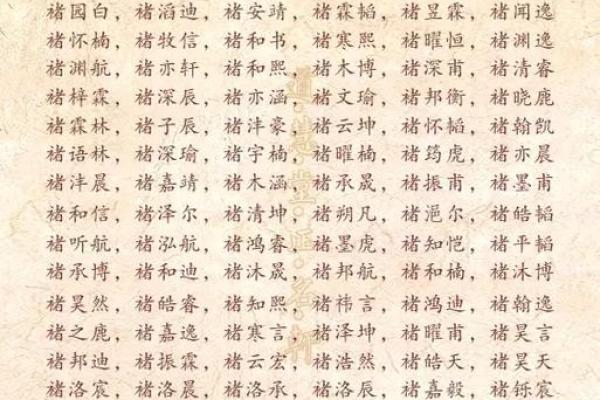 褚园白，褚滔迪，褚安靖，褚霖韬，褚昱霖，褚闻逸
褚怀楠，褚牧信，褚和书，褚寒熙，褚曜恒，褚渊逸
褚渊航，褚亦轩，褚和熙，褚木博，褚深甫，褚清睿
褚梓霖，褚深辰，褚亦涵，褚文瑜，褚邦衡，褚晓鹿
褚霖林，褚子辰，褚沣豪，褚云坤，褚怀韬，褚翰凯
褚语林，褚深瑜，褚宇楠，褚曜楠，褚筠虎，褚亦晨
褚沣晨，褚嘉靖，褚木涵，褚承晟，褚振甫，褚墨甫
褚和信，褚泽尔，褚清坤，褚朔凡，褚滟尔，褚皓韬
褚听航，褚泓航，褚鸿睿，褚墨虎，褚知恺，褚平韬
褚承博，褚和迪，褚沐晟，褚邦航，褚和楠，褚沐博
褚昊然，褚皓睿，褚知熙，褚祎言，褚鸿迪，褚翰逸
褚之鹿，褚嘉逸，褚寒言，褚泽坤，褚曜甫，褚昊言
褚邦迪，褚振霖，褚云宏，褚浩然，褚皓天，褚昊天
褚洛宸，褚洛晨，褚洛承，褚洛辰，褚嘉毅，褚铄宸